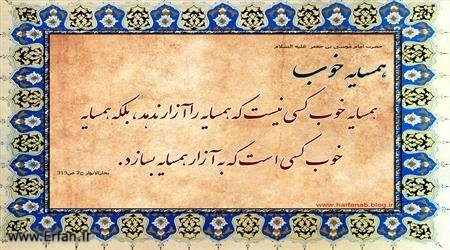 حضرت امام موسی بن جعفر علیه السلام
همسایه خوب
همسایه خوب کسی نیست که همسایه را آزار ندهد، بلکه همسایه
خوب کسی است که به آزار همسایه بسازد.
بحارالانوار ج2 ص315
www.harfenab.blog.ir
www.Erfan.ir